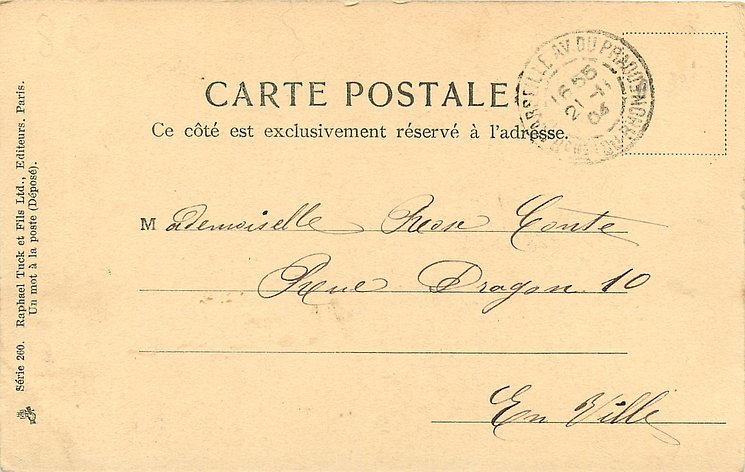 CARTE POSTALE
Ce côté est exclusivement réservé à l'adresse.
MARSEILLE AV. DU PRADO
Mademoiselle Rose Conte
Rue Dragon 10
En Ville
Série 260. Raphael Tuck et Fils Ltd., Editeurs, Paris.
Un mot à la poste (Déposé).